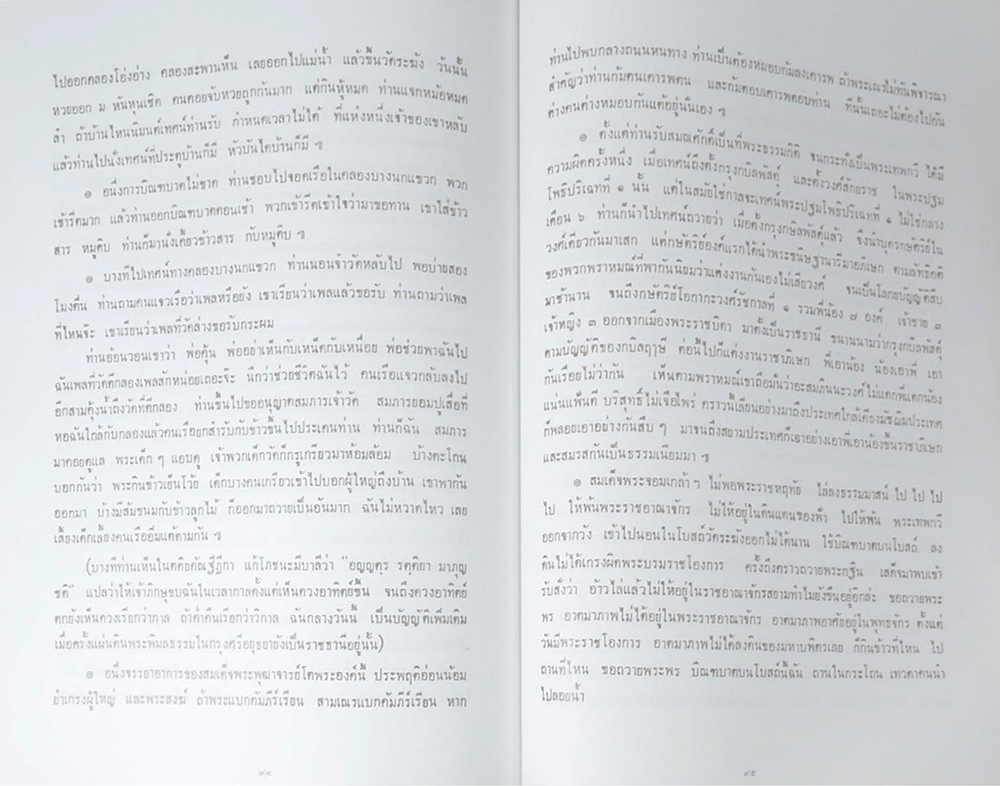 ไปออกคลองโอ่งอ่าง คลองสะพานหัน เลยออกไปแม่น้ำ แล้วขึ้นวัดระฆัง วันนั้น
หวยออก ม หันหุนเชิด คนคอยจับหวยถูกกันมาก แต่กินหู้หมด ท่านแจกหม้อหมด
ลำ ถ้าบ้านไหนนิมนต์เทศน์ท่านรับ กำหนดเวลาไม่ได้ ที่แห่งหนึ่งเจ้าของเขาหลับ
แล้วท่านไปนั่งเทศน์ที่ประตูบ้านก็มี หัวบันไดบ้านก็มี ฯ
๏ อนึ่งการบิณฑบาตไม่ขาด ท่านชอบไปจอดเรือในคลองบางนกแขวก พวก
เข้ารีดมาก แล้วท่านออกบิณฑบาตตอนเช้า พวกเข้ารีดเข้าใจว่ามาขอทาน เขาใส่ข้าว
สาร หมูดิบ ท่านก็มานั่งเคี้ยวข้าวสาร กับหมูดิบ ฯ
๏ บางทีไปเทศน์ทางคลองบางนกแขวก ท่านนอนจำวัดหลับไป พอบ่ายสอง
โมงตื่น ท่านถามคนแจวเรือว่าเพลหรือยัง เขาเรียนว่าเพลแล้วขอรับ ท่านถามว่าเพล
ที่ไหนจ๊ะ เขาเรียนว่าเพลที่วัดล่างขอรับกระผม
ท่านอ้อนวอนเขาว่า พ่อคุ้น พ่ออย่าเห็นกับเหน็ดกับเหนื่อย พ่อช่วยพาฉันไป
ฉันเพลที่วัดตีกลองเพลสักหน่อยเถอะจ๊ะ นึกว่าช่วยชีวิตฉันไว้ คนเรือแจวกลับลงไป
อีกสามคุ้งน้ำถึงวัดที่ตีกลอง ท่านขึ้นไปขออนุญาตสมภารเจ้าวัด สมภารยอมปูเสื่อที่
หอฉันใกล้กับกลองแล้วคนเรือยกสำรับกับข้าวขึ้นไปประเคนท่าน ท่านก็ฉัน สมภาร
มาคอยดูแล พระเด็ก ๆ แอบดู เจ้าพวกเด็กวัดก็กรูเกรียวมาห้อมล้อม บ้างตะโกน
บอกกันว่า พระกินข้าวเย็นโว้ย เด็กบางคนเกรียวเข้าไปบอกผู้ใหญ่ถึงบ้าน เขาพากัน
ออกมา บ้างมีส้มขนมกับข้าวลูกไม้ ก็ออกมาถวายเป็นอันมาก ฉันไม่หวาดไหว เลย
เลี้ยงเด็กเลี้ยงคนเรืออิ่มแต้ตามกัน ฯ
(บางทีท่านเห็นในคติอคัณฐีฎีกา แก้โภชนะมีบาลีว่า "อญฺญตฺร รตฺติยา มาภุญ
ชติ" แปลว่าให้เจ้าภิกษุขบฉันในเวลากาลตั้งแต่เห็นดวงอาทิตย์ขึ้น จนถึงดวงอาทิตย์
ตกยังเห็นดวงเรียกว่ากาล ถ้าค่ำคืนเรียกว่าวิกาล ฉันกลางวันนี้ เป็นบัญญัติเพิ่มเติม
เมื่อครั้งแผ่นดินพระพิมลธรรมในกรุงศรีอยุธยายังเป็นราชธานีอยู่นั้น)
๏ อนึ่งจรรยาอาการของสมเด็จพระพุฒาจารย์โตพระองค์นี้ ประพฤติอ่อนน้อม
ยำเกรงผู้ใหญ่ และพระสงฆ์ ถ้าพระแบกคัมภีร์เรียน สามเณรแบกคัมภีร์เรียน หาก
๙๔
ท่านไปพบกลางถนนหนทาง ท่านเป็นต้องหมอบก้มลงเคารพ ถ้าพระเณรไม่ทันพิจารณา
สำคัญว่าท่านก้มตนเคารพตน และก้มตอบเคารพตอบท่าน ทีนั้นเถอะไม่ต้องไปกัน
ต่างคนต่างหมอบกันแต้อยู่นั่นเอง ฯ
๏ ตั้งแต่ท่านรับสมณศักดิ์เป็นที่พระธรรมกิติ จนกระทั่งเป็นพระเทพกวี ได้มี
ความผิดครั้งหนึ่ง เมื่อเทศน์ถึงตั้งกรุงกบิลพัสดุ์ และตั้งวงศ์สักยราช ในพระปฐม
โพธิปริเฉทที่ ๑ นั้น แต่ในสมัยใช่กาลจะเทศน์พระปฐมโพธิปริเฉทที่ ๑ ไม่ใช่กลาง
เดือน ๖ ท่านก็นำไปเทศน์ถวายว่า เมื่อตั้งกรุงกบิลพัสดุ์แล้ว จึงนำบุตรกษัตริย์ใน
วงศ์เดียวกันมาเสก แต่กษัตริย์องค์แรกได้นำพระชนิษฐานารีมาอภิเษก ตามลัทธิคติ
ของพวกพราหมณ์ที่พากันนิยมว่าแต่งงานกันเองไม่เสียวงศ์ จนเป็นโลกยบัญญัติสืบ
มาช้านาน จนถึงกษัตริย์โอกากะวงศ์รัชกาลที่ ๑ รวมพี่น้อง ๗ องค์ เจ้าชาย ๓
เจ้าหญิง ๓ ออกจากเมืองพระราชบิดา มาตั้งเป็นราชธานี ขนานนามว่ากรุงกบิลพัสดุ์
ตามบัญญัติของกบิลฤาษี ต่อนี้ไปก็แต่งงานราชาภิเษก พี่เอาน้อง น้องเอาพี่ เอา
กันเรื่อยไม่ว่ากัน เห็นตามพราหมณ์เขาถือมั่นว่าอะสมภินนะวงศ์ ไม่แตกพี่แตกน้อง
แน่นแฟ้นดี บริสุทธิ์ไม่เจือไพร่ คราวนี้เลียนอย่างมาถึงประเทศใกล้เคียงมัชฌิมประเทศ
ก็พลอยเอาอย่างกันสืบ ๆ มาจนถึงสยามประเทศก็เอาอย่างเอาพี่เอาน้องขึ้นราชาภิเษก
และสมรสกันเป็นธรรมเนียมมา ฯ
๏ สมเด็จพระจอมเกล้าฯ ไม่พอพระราชหฤทัย ไล่ลงธรรมาสน์ ไป ไป ไป
ไป ให้พ้นพระราชอาณาจักร ไม่ให้อยู่ในดินแดนของฟ้า ไปให้พ้น พระเทพกวี
ออกจากวัง เข้าไปนอนในโบสถ์วัดระฆังออกไม่ได้นาน ใช้บิณฑบาตบนโบสถ์ ลง
ดินไม่ได้เกรงผิดพระบรมราชโองการ ครั้งถึงคราวถวายพระกฐิน เสด็จมาพบเข้า
รับสั่งว่า อ้าวไล่แล้วไม่ให้อยู่ในราชอาณาจักรสยามทำไมยังขืนอยู่อีกล่ะ ขอถวายพระ
พร อาตมาภาพไม่ได้อยู่ในพระราชอาณาจักร อาตมาภาพอาศัยอยู่ในพุทธจักร ตั้งแต่
วันมีพระราชโองการ อาตมาภาพไม่ได้ลงดินของมหาบพิตรเลย ก็กินข้าวที่ไหน ไป
ถานที่ไหน ขอถวายพระพร บิณฑบาตบนโบสถ์นี้ฉัน ถานในกระโถน เทวดาคนนำ
ไปลอยน้ำ
๙๕